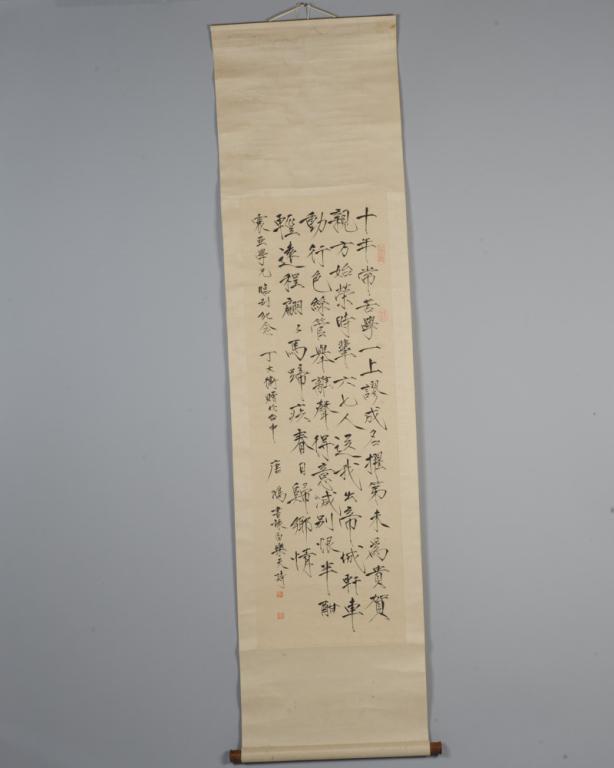 十年常苦學一上謬成名擢第未為貴賀
親方始榮時輩六七人送我出帝城軒車
動行色絲管舉離聲得意減別恨半酣
輕遠程翩〻馬蹄疾春日歸鄉情
震亞學兄臨別紀念 丁大衡贈於台中 唐 書 白樂天詩